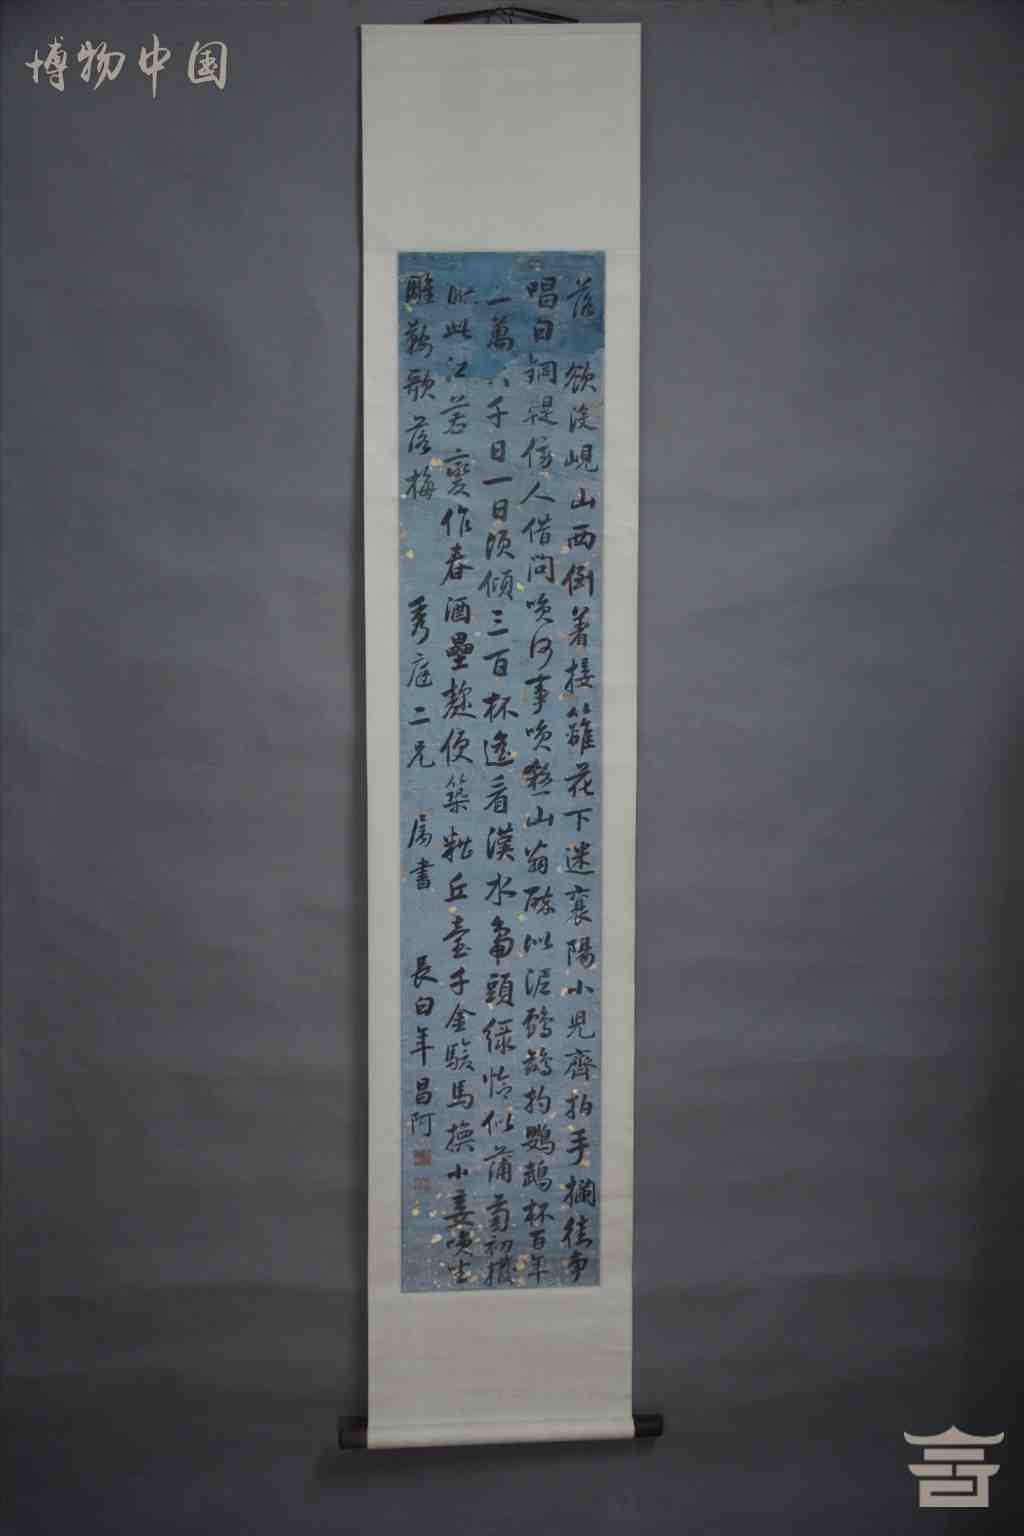 博物中国
落 欲没峴山西倒著接籬花下迷襄陽小兒齊拍手攔街争
唱白銅鞮傍人借問唉何事唉煞山翁醉似泥鸕鷀杓鸚鵡杯百年
一萬八千日一日須傾三百杯遙看漢水鴨頭綠恰似蒲萄初撥
醅此江若變作春酒壘麴便築糟丘臺千金駿馬換小妾唉坐
雕鞍歌落梅 秀庭二兄 屬書 長白年昌阿